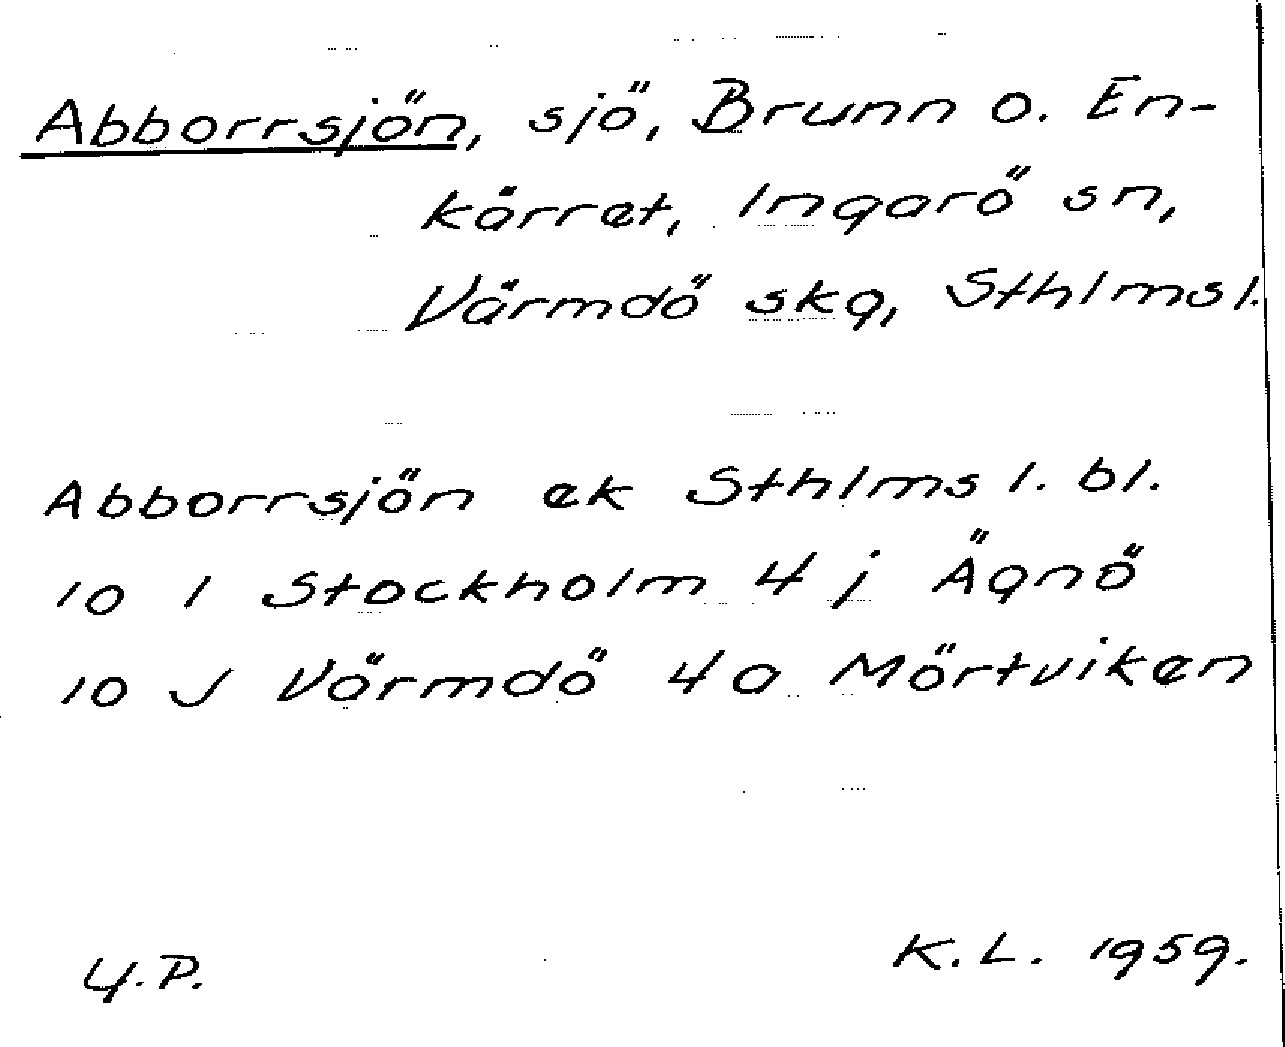 Abborrsjön, sjö, Brunn o. En-
kärret, Ingarö sn,
Värmdö skg, Sthlms l.
Abborrsjön ek Sthlms l. bl.
10 I Stockholm 4 j Ägnö
10 J Värmdö 4 a Mörtviken
Y.P. K.L. 1959.